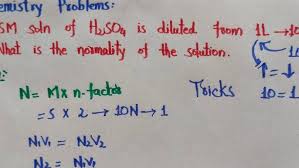 emistry Problems:
5M soln of H₂SO₄ is diluted from 1L →10
What is the normality of the solution.
N = M x n-factor
Tricks
↑ = ↓
= 5 x 2 → 10N → 1
10 = 1
N₁V₁ = N₂V₂
N₂ = N₁V₁